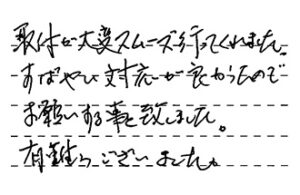 取付も大変スムーズに行ってくれました。
すばやい対応が良かったので
お願いする事と致しました。
有難うございました。